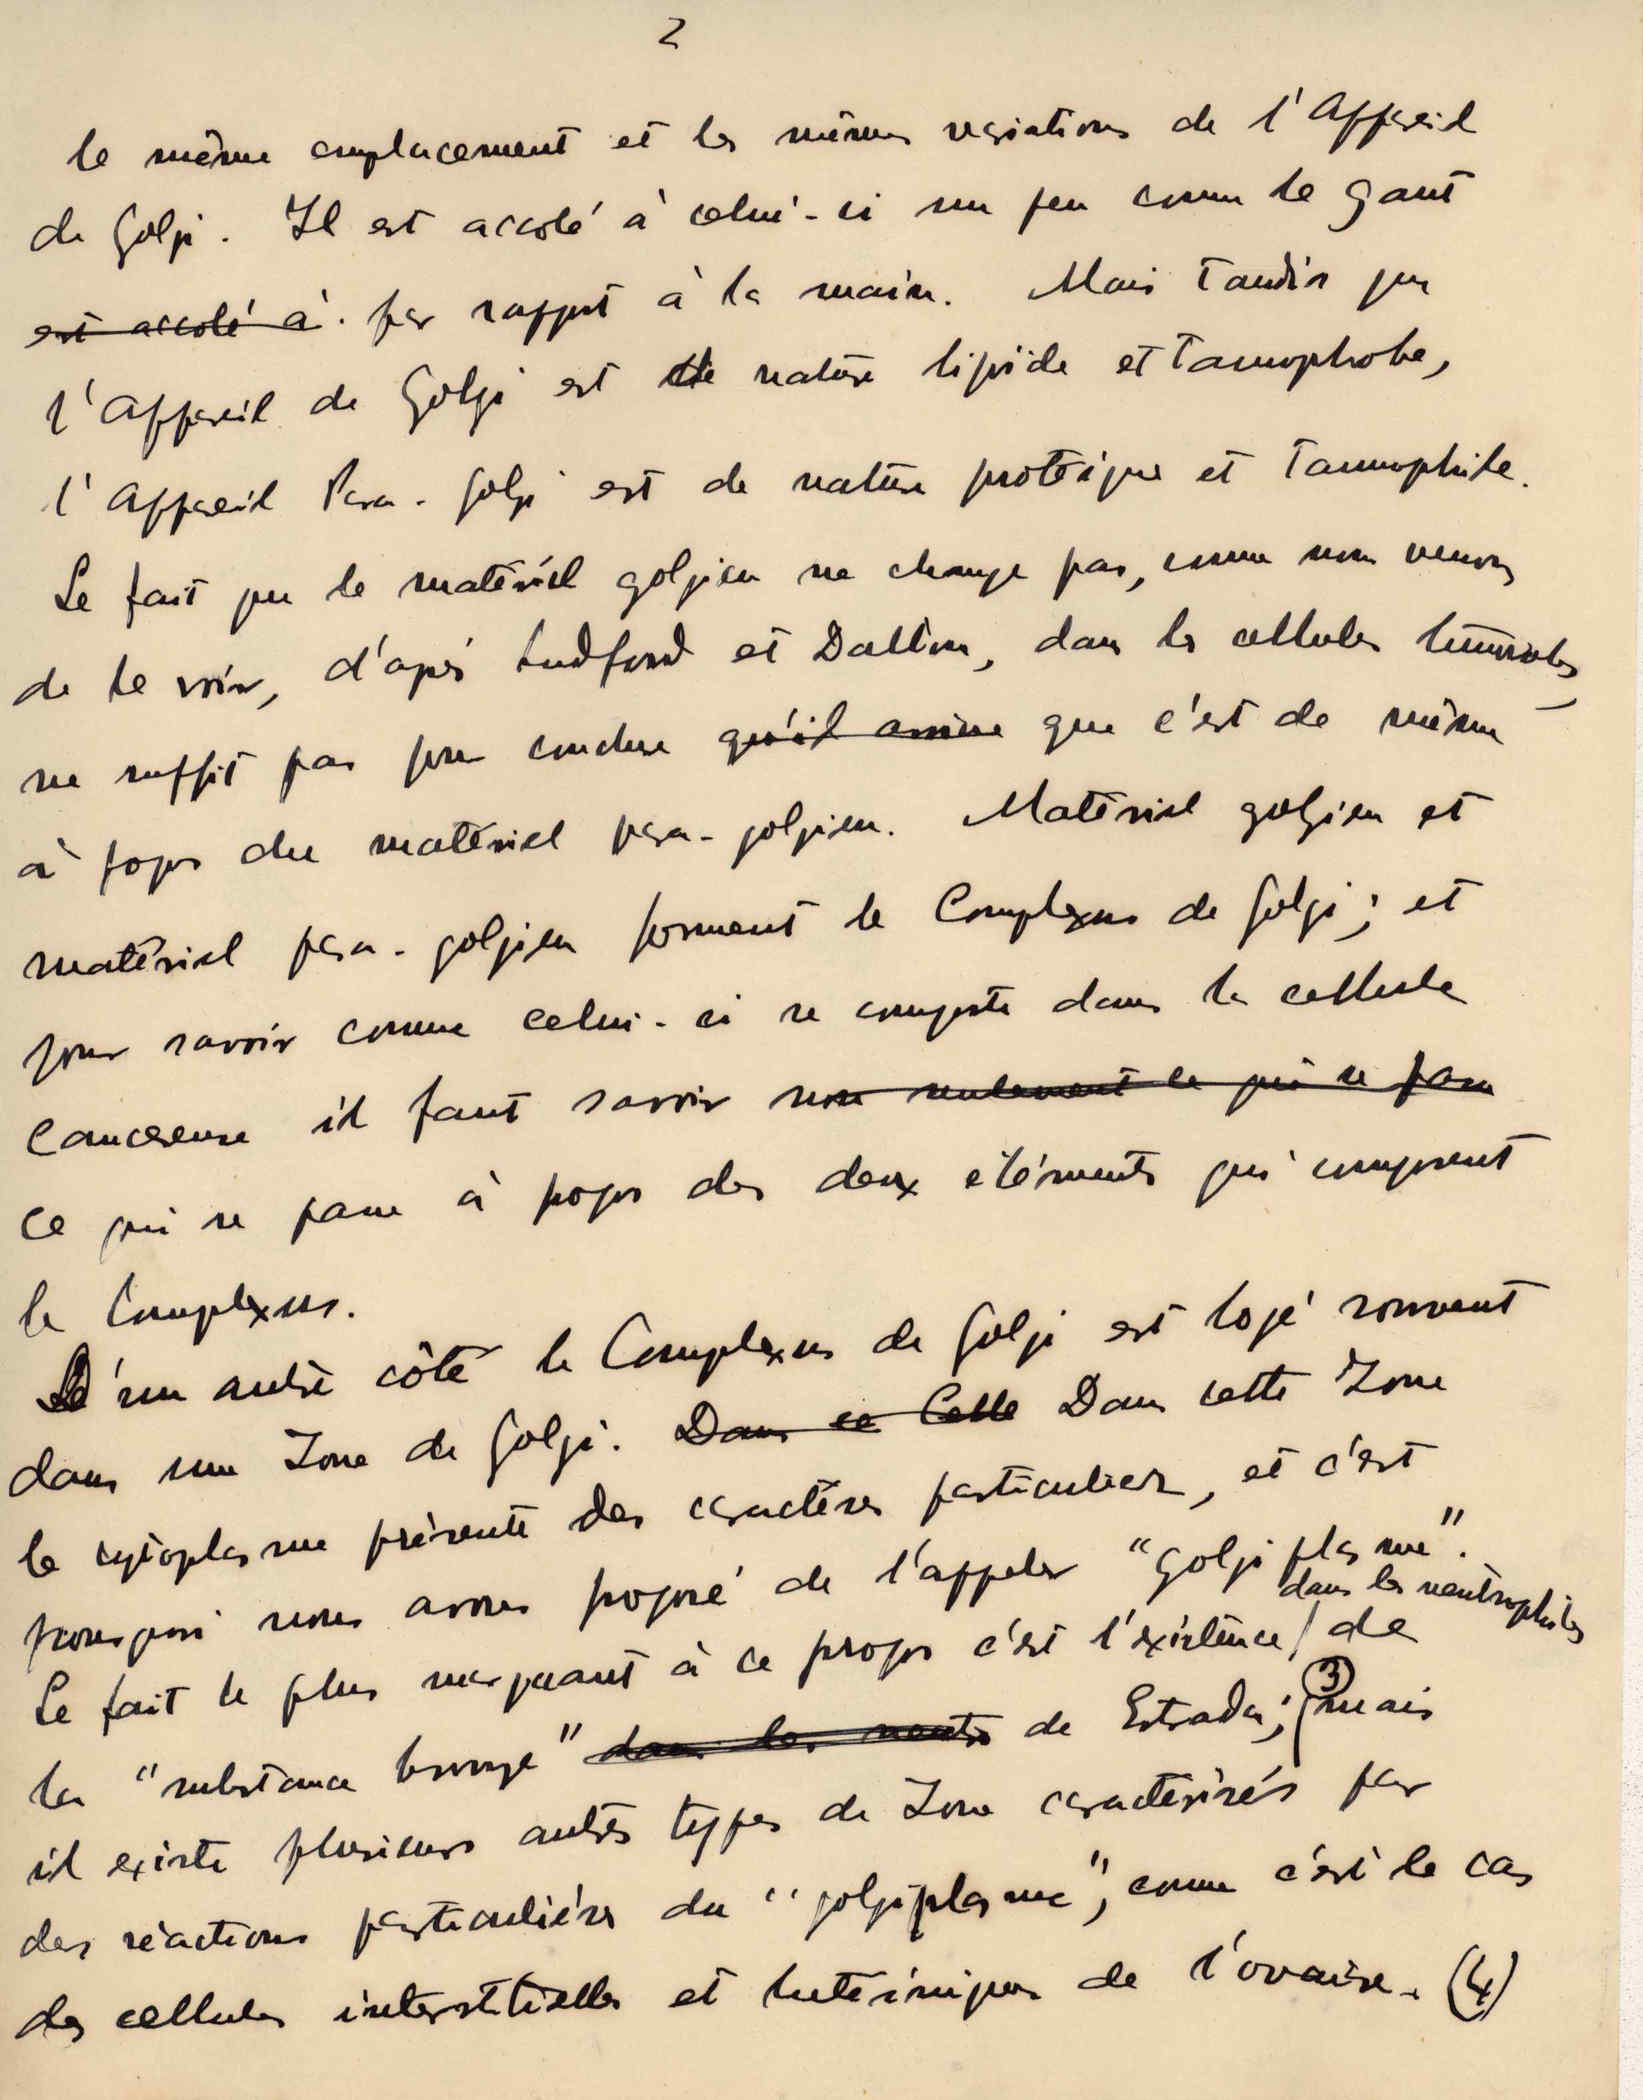 2
le même emplacement et les mêmes variations de l'Appareil
de Golgi. Il est accolé à celui-ci un peu comme le gant
est accolé à par rapport à la main. Mais tandis que
l'Appareil de Golgi est de nature lipoïde et tannophobe,
l'Appareil Para-Golgi est de nature protéique et tannophile.
Le fait que le matériel golgien ne change pas, comme nous venons
de le voir, d'après Ludford et Dalton, dans les cellules tumorales,
ne suffit pas pour conclure qu'il arrive que c'est de même
à propos du matériel para-golgien. Matériel golgien et
matériel para-golgien forment le Complexus de Golgi; et
pour savoir comme celui-ci se comporte dans la cellule
cancéreuse il faut savoir non seulement ce qui se passe
ce qui se passe à propos des deux éléments qui composent
le Complexus.
D'un autre côté le Complexus de Golgi est logé souvent
dans une Zone de Golgi. Dans ce Celle Dans cette Zone
le cytoplasme présente des caractères particuliers, et c'est
pourquoi nous avons proposé de l'appeler "golgiplasme".
dans les neutrophiles
Le fait le plus marquant à ce propos c'est l'existence / de
la "substance bronze" dans les neutro de Estrada; (3) mais
il existe plusieurs autres types de Zone caractérisés par
des réactions particulières du "golgiplasme", comme c'est le cas
des cellules interstitielles et lutéiniques de l'ovaire. (4)